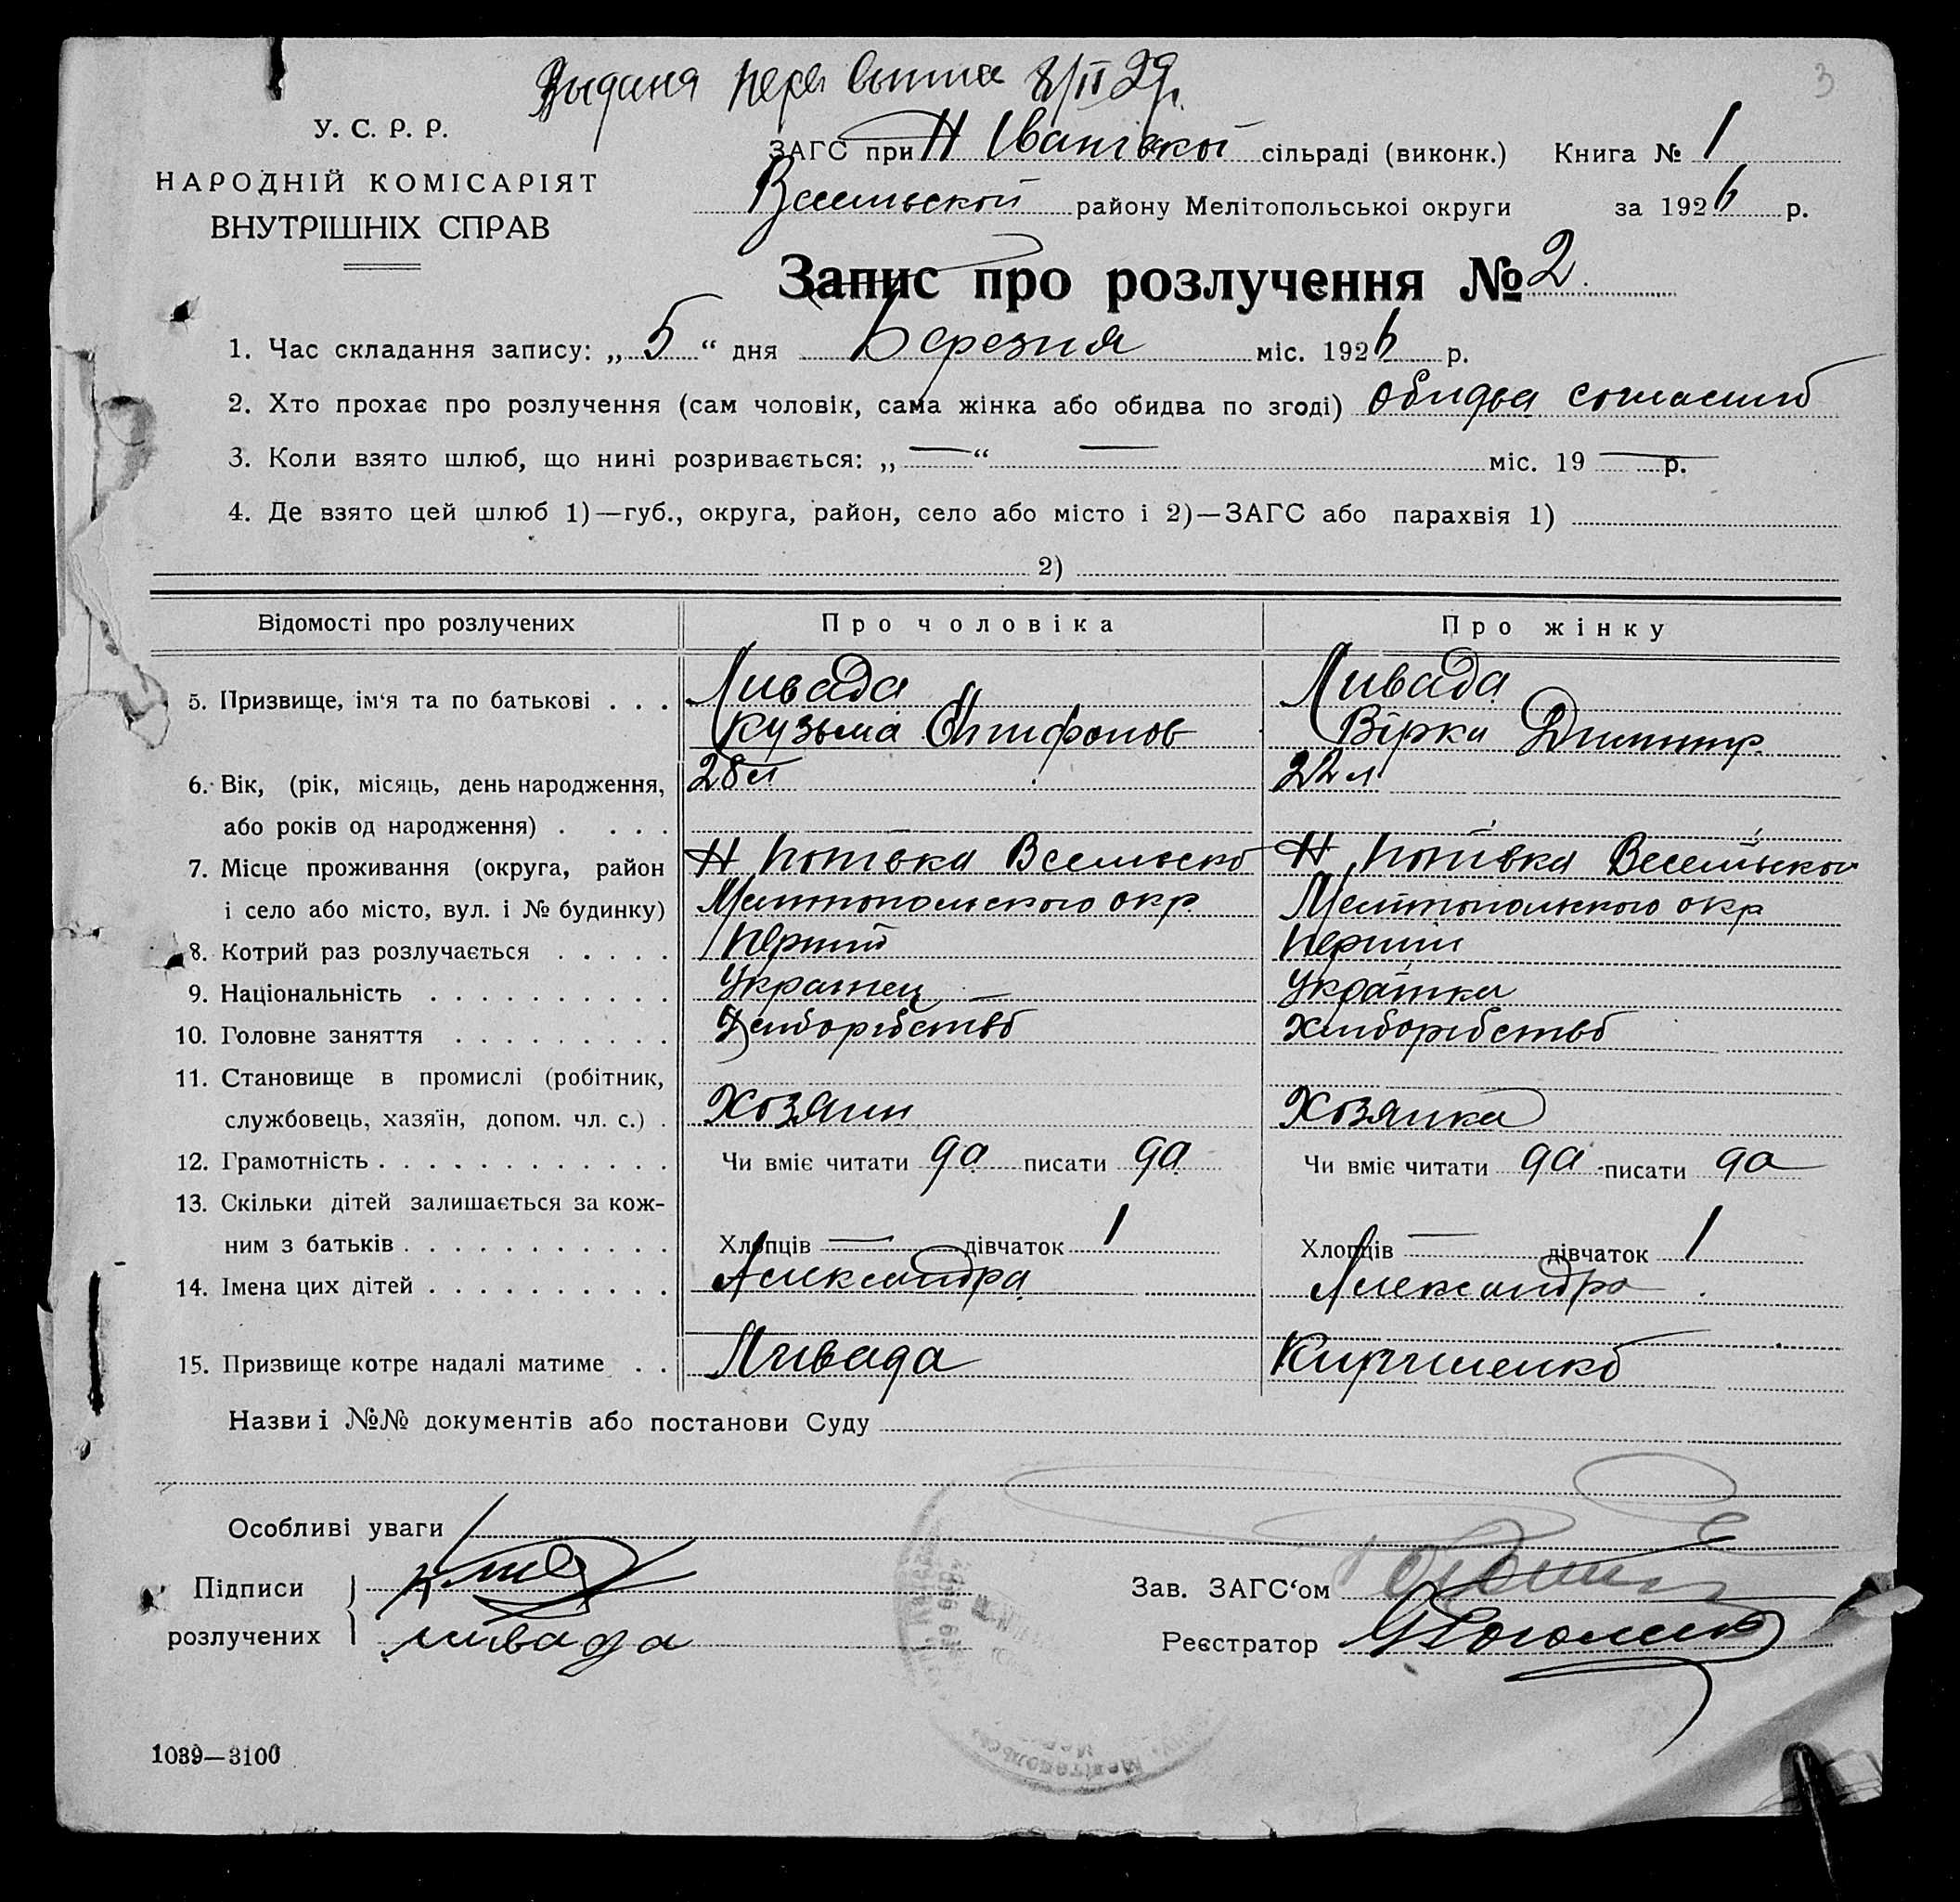 Выдана 8/II 29 г.
3
У. С. Р. Р.
НАРОДНІЙ КОМІСАРІЯТ
ВНУТРІШНІХ СПРАВ
ЗАГС при Н Іванівкої сільраді (виконк.) Книга № 1
Весельской району Мелітопольськоі округи за 1926 р.
Запис про розлучення № 2.
1. Час складання запису: „ 5 “ дня Березня міс. 1926 р.
2. Хто прохає про розлучення (сам чоловік, сама жінка або обидва по згоді) обидва
3. Коли взято шлюб, що нині розривається: „ — “ — міс. 19 — р.
4. Де взято цей шлюб 1)—губ., округа, район, село або місто і 2)—ЗАГС або парахвія 1)
2)
Відомості про розлучених Про чоловіка Про жінку
5. Призвище, ім‘я та по батькові . . . Ливада Ливада
Кузьма Вірка Дмитр.
6. Вік, (рік, місяць, день народження, 28 л 22 л
або років од народження) . . . .
7. Місце проживання (округа, район Н Весельско Н Весельской
і село або місто, вул. і № будинку) Мелітопольского окр. Мелітопольского окр
8. Котрий раз розлучається . . . . . Перший Перший
9. Національність . . . . . . . . . . Українец — Українка
10. Головне заняття . . . . . . . . . Хліборібство Хліборібство
11. Становище в промислі (робітник,
службовець, хазяїн, допом. чл. с.) . Хозяин Хозяйка
12. Грамотність . . . . . . . . . . . . Чи вміє читати да писати да Чи вміє читати да писати да
13. Скільки дітей залишається за кож-
ним з батьків . . . . . . . . . . . Хлопців — дівчаток 1 Хлопців — дівчаток 1
14. Імена цих дітей . . . . . . . . . . Александра Александра
15. Призвище котре надалі матиме . . Ливада Кириченко
Назви і №№ документів або постанови Суду
Особливі уваги
Підписи
розлучених Ливада
Зав. ЗАГС‘ом
Реєстратор
1039—3100